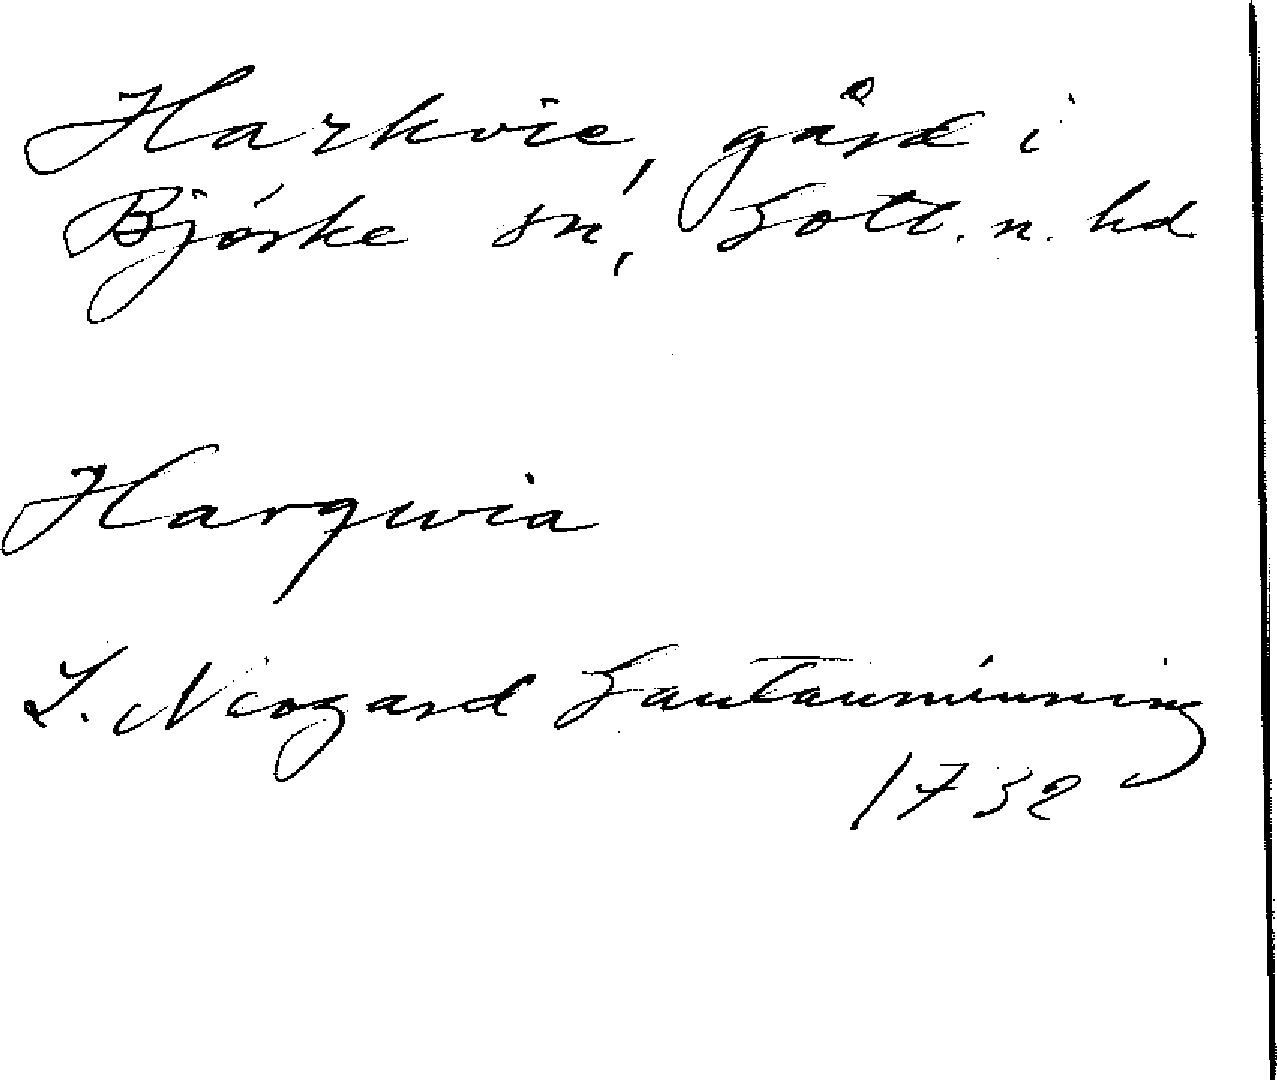 Harkvie, gård i
Björke sn, Gotl. n. hd
Harqwia
L. Neogard Gautauminning
1732